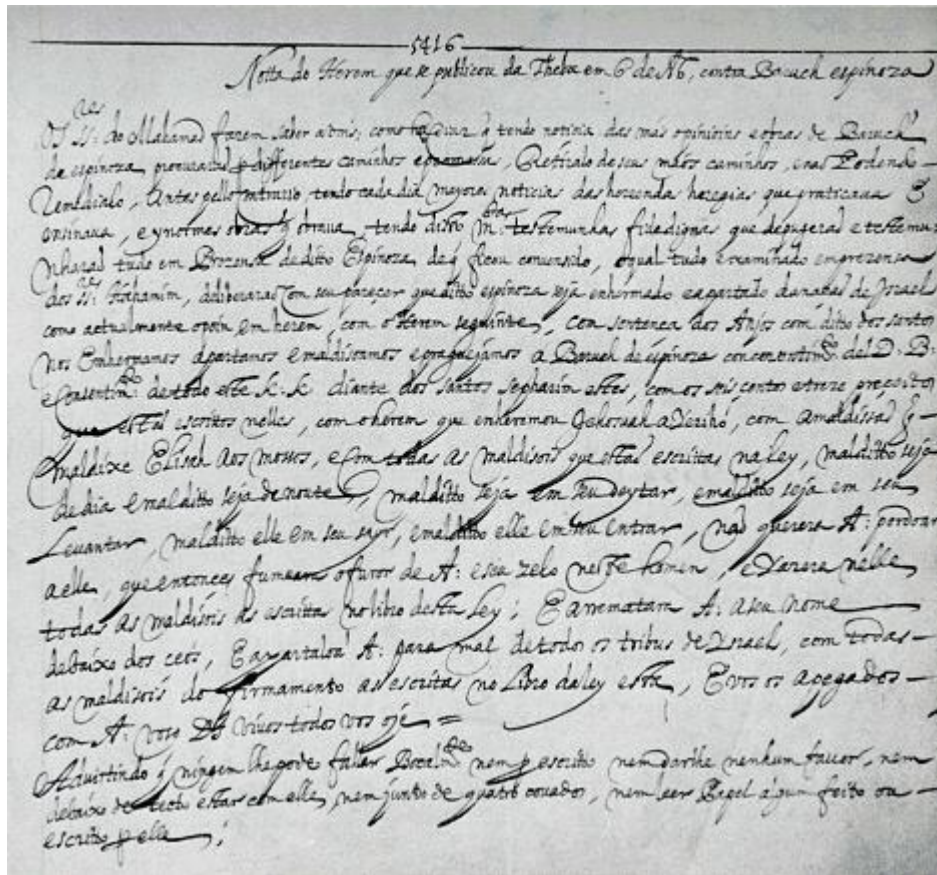 5416
Notta do Herem que se publicou da Theba em 6 de Ab, contra Baruch espinoza
Os SS.res do Mahamad fazem saber a V.Ms; como ha dias q tendo noticia das mâs opinioins e obras de Baruch
de espinoza procuraraõ p differentes caminhos e promesas, Retiralo de seus maôs caminhos, e naõ Podendo
Remedialo, Antes pello contrario, tendo cada dia mayores noticias das horrendas heregias que praticava E
ensinava, e ynormes obras q obrava, tendo disto m.tas testemunhas fidedignas que depugeraõ e testemu-
nharaõ tudo em Prezensa de ditto Espinoza, de q ficou convensido, o qual tudo examinado em prezensa
dos SS.res Hahamim, deliberaraõ com seu parecer que ditto espinoza seja enhermado e apartado da naçaõ de Israel
como actualmente o poin em herem, com o Herem seguinte, Con sentença dos Anjos com ditto dos santos
Nos Enhermamos Apartamos E maldisoamos e praguejamos a Baruch de espinoza con consentim.to del D: B:
e Consentim.to de todo este K: K diante dos santos sepharim estes, com os seis centos e treze preçeitos
que estaõ escrittos nelles, com o herem que enheremou Jehosuah a Yeriho, com a maldissaõ q
maldixe Elisah aos mossos, e Com todas As maldisois que estaõ escrittas na ley, malditto seja
de dia E malditto seja de noute, malditto seja em seu deytar, e malditto seja em seu
Levantar, malditto elle em seu sayr, e malditto elle em seu Entrar, naõ querera A: perdoar
a elle, que entonces fumeara o furor de A: e seu zelo neste homem, e Yazera nelle
todas As maldisois as escrittas no libro desta Ley; E arrematara A: a seu nome
debaixo dos ceos, E apartaloa A: para mal de todos os tribus de Ysrael, com todas
as maldisois do firmamento as escritas no Libro da ley esta, E vos os apegados
com A: voso D.s vivos todos vos oje =
Advirtindo q ningem lhe pode fallar Bocalm.te nem p escritto nem darlhe nenhum favor, nem
debaixo de tecto estar com elle, nem junto de quatro covados, nem leer Papel algum feito ou
escritto p elle ;